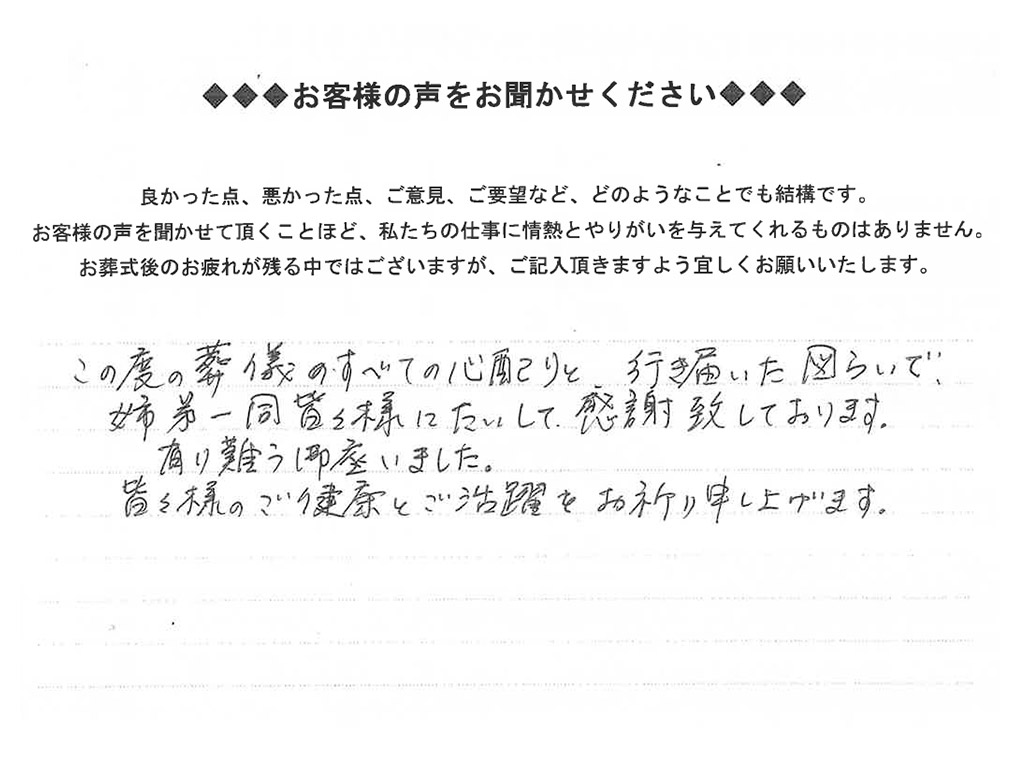 ◆◆◆お客様の声をお聞かせください◆◆◆
良かった点、悪かった点、ご意見、ご要望など、どのようなことでも結構です。
お客様の声を聞かせて頂くことほど、私たちの仕事に情熱とやりがいを与えてくれるものはありません。
お葬式後のお疲れが残る中ではございますが、ご記入頂きますよう宜しくお願いいたします。
この度の葬儀のすべての心配りと、行き届いた図らいで、
姉弟一同皆々様にたいして、感謝致しております。
有り難う御座いました。
皆々様のご健康とご活躍をお祈り申し上げます。